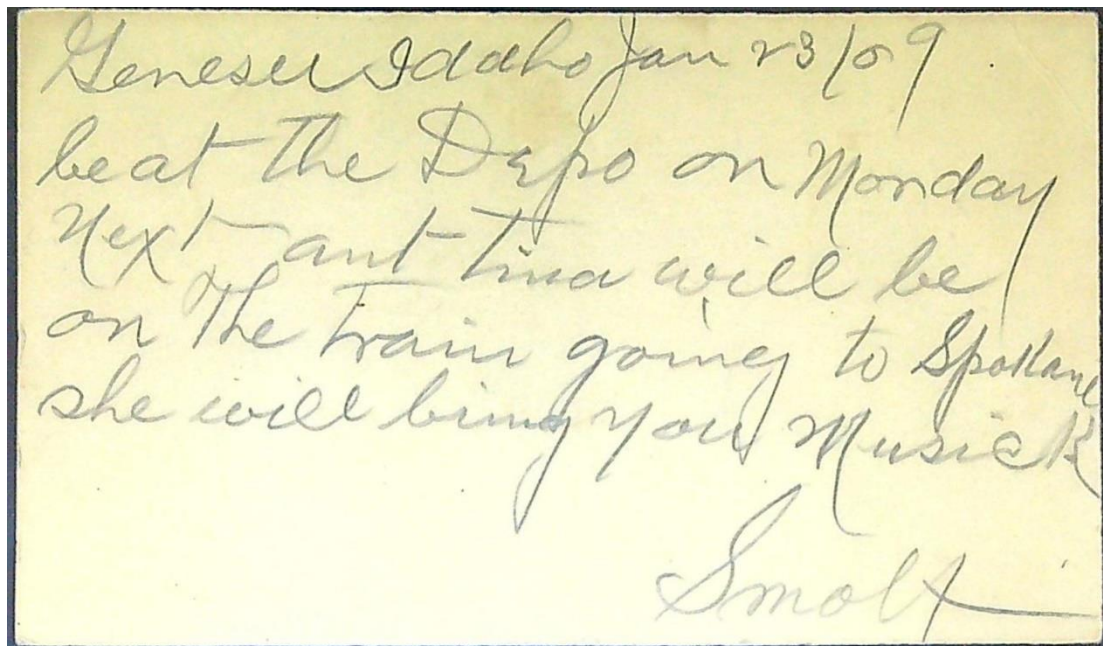 Genesee Idaho Jan 23/09.
be at the Depo on Monday
Next ant tina will be
on The train going to Spokane
she will bring you Musick
Smolt